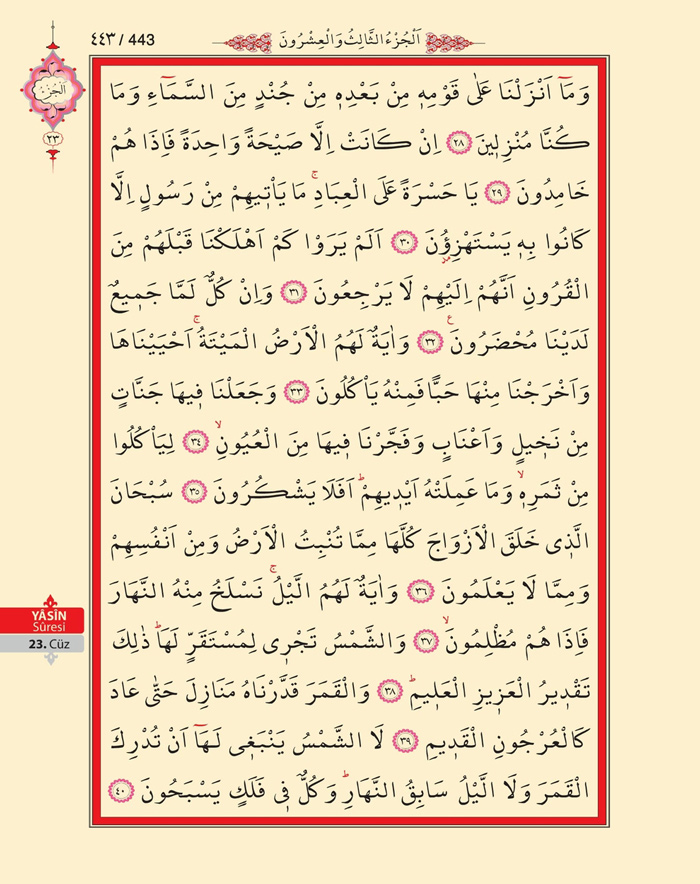 ٤٤٣ / 443
اَلْجُزْءُ الثَّالِثُ وَالْعِشْرُونَ
اَلْجُزْءُ
٢٣
وَمَٓا اَنْزَلْنَا عَلٰى قَوْمِه۪ مِنْ بَعْدِه۪ مِنْ جُنْدٍ مِنَ السَّمَٓاءِ وَمَا
كُنَّا مُنْزِل۪ينَ ﴿٢٨﴾ اِنْ كَانَتْ اِلَّا صَيْحَةً وَاحِدَةً فَاِذَا هُمْ
خَامِدُونَ ﴿٢٩﴾ يَا حَسْرَةً عَلَى الْعِبَادِۚ مَا يَأْت۪يهِمْ مِنْ رَسُولٍ اِلَّا
كَانُوا بِه۪ يَسْتَهْزِؤُ۫نَ ﴿٣٠﴾ اَلَمْ يَرَوْا كَمْ اَهْلَكْنَا قَبْلَهُمْ مِنَ
الْقُرُونِ اَنَّهُمْ اِلَيْهِمْ لَا يَرْجِعُونَ ﴿٣١﴾ وَاِنْ كُلٌّ لَمَّا جَم۪يعٌ
لَدَيْنَا مُحْضَرُونَ۟ ﴿٣٢﴾ وَاٰيَةٌ لَهُمُ الْاَرْضُ الْمَيْتَةُۚ اَحْيَيْنَاهَا
وَاَخْرَجْنَا مِنْهَا حَبًّا فَمِنْهُ يَأْكُلُونَ ﴿٣٣﴾ وَجَعَلْنَا ف۪يهَا جَنَّاتٍ
مِنْ نَخ۪يلٍ وَاَعْنَابٍ وَفَجَّرْنَا ف۪يهَا مِنَ الْعُيُونِۙ ﴿٣٤﴾ لِيَأْكُلُوا
مِنْ ثَمَرِه۪ۙ وَمَا عَمِلَتْهُ اَيْد۪يهِمْۜ اَفَلَا يَشْكُرُونَ ﴿٣٥﴾ سُبْحَانَ
الَّذ۪ي خَلَقَ الْاَزْوَاجَ كُلَّهَا مِمَّا تُنْبِتُ الْاَرْضُ وَمِنْ اَنْفُسِهِمْ
وَمِمَّا لَا يَعْلَمُونَ ﴿٣٦﴾ وَاٰيَةٌ لَهُمُ الَّيْلُۚ نَسْلَخُ مِنْهُ النَّهَارَ
فَاِذَا هُمْ مُظْلِمُونَۙ ﴿٣٧﴾ وَالشَّمْسُ تَجْر۪ي لِمُسْتَقَرٍّ لَهَاۜ ذٰلِكَ
تَقْد۪يرُ الْعَز۪يزِ الْعَل۪يمِۜ ﴿٣٨﴾ وَالْقَمَرَ قَدَّرْنَاهُ مَنَازِلَ حَتّٰى عَادَ
كَالْعُرْجُونِ الْقَد۪يمِ ﴿٣٩﴾ لَا الشَّمْسُ يَنْبَغ۪ي لَهَٓا اَنْ تُدْرِكَ
الْقَمَرَ وَلَا الَّيْلُ سَابِقُ النَّهَارِۜ وَكُلٌّ ف۪ي فَلَكٍ يَسْبَحُونَ ﴿٤٠﴾
YÂSÎN
Sûresi
23. Cüz